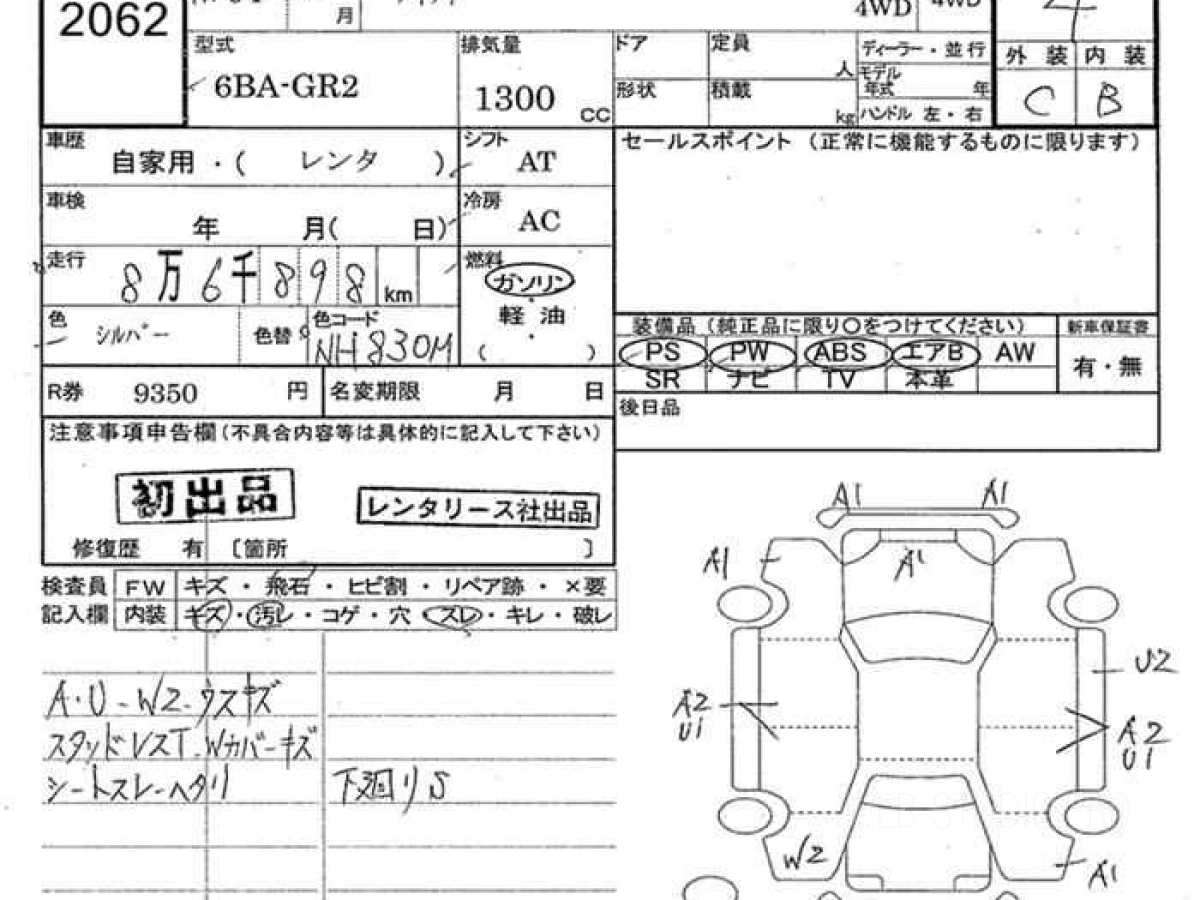 2062
月
4WD 4WD
4
型式
6BA-GR2
排気量
1300 CC
ドア
定員
人
ディーラー・並行
モデル
年式 年
形状
積載
kg
ハンドル 左・右
外装 内装
C B
車歴
自家用・( レンタ )
シフト
AT
セールスポイント (正常に機能するものに限ります)
車検
年 月( 日)
冷房
AC
走行
8万6千898 km
燃料
ガソリン
軽油
( ・ )
色
シルバー
色替
色コード
NH830M
装備品(純正品に限り○をつけてください)
新車保証書
PS PW ABS エアB AW
有・無
SR ナビ TV 本革
R券 9350 円
名変期限 月 日
後日品
注意事項申告欄(不具合内容等は具体的に記入して下さい)
初出品
レンタリース社出品
修復歴 有 〔箇所 〕
検査員 FW キズ・飛石・ヒビ割・リペア跡・×要
記入欄 内装 キズ・汚レ・コゲ・穴・スレ・キレ・破レ
A・U-W2-ウスキズ
スタッドレスT-Wカバーキズ
シートスレ-ヘタリ
下廻りS
A1 A1
A1
A1
U2
A2
U1
A2
U1
W2
A1